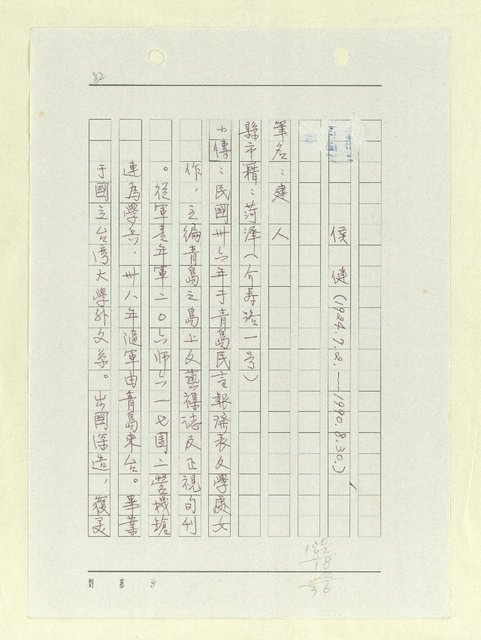 82
侯 健(1926.7.2.—1990.8.30.)
筆名：建 人
縣市籍：菏澤(介壽路一号)
小傳：民國卅六年于青島民言報發表文學處女
作，主編青島之島上文藝雜誌及正視旬刊
。從軍青年軍二0六師六一七團二營機槍
連為學兵，卅八年隨軍由青島來台。畢業
于國立台灣大學外文系。出國深造，獲美